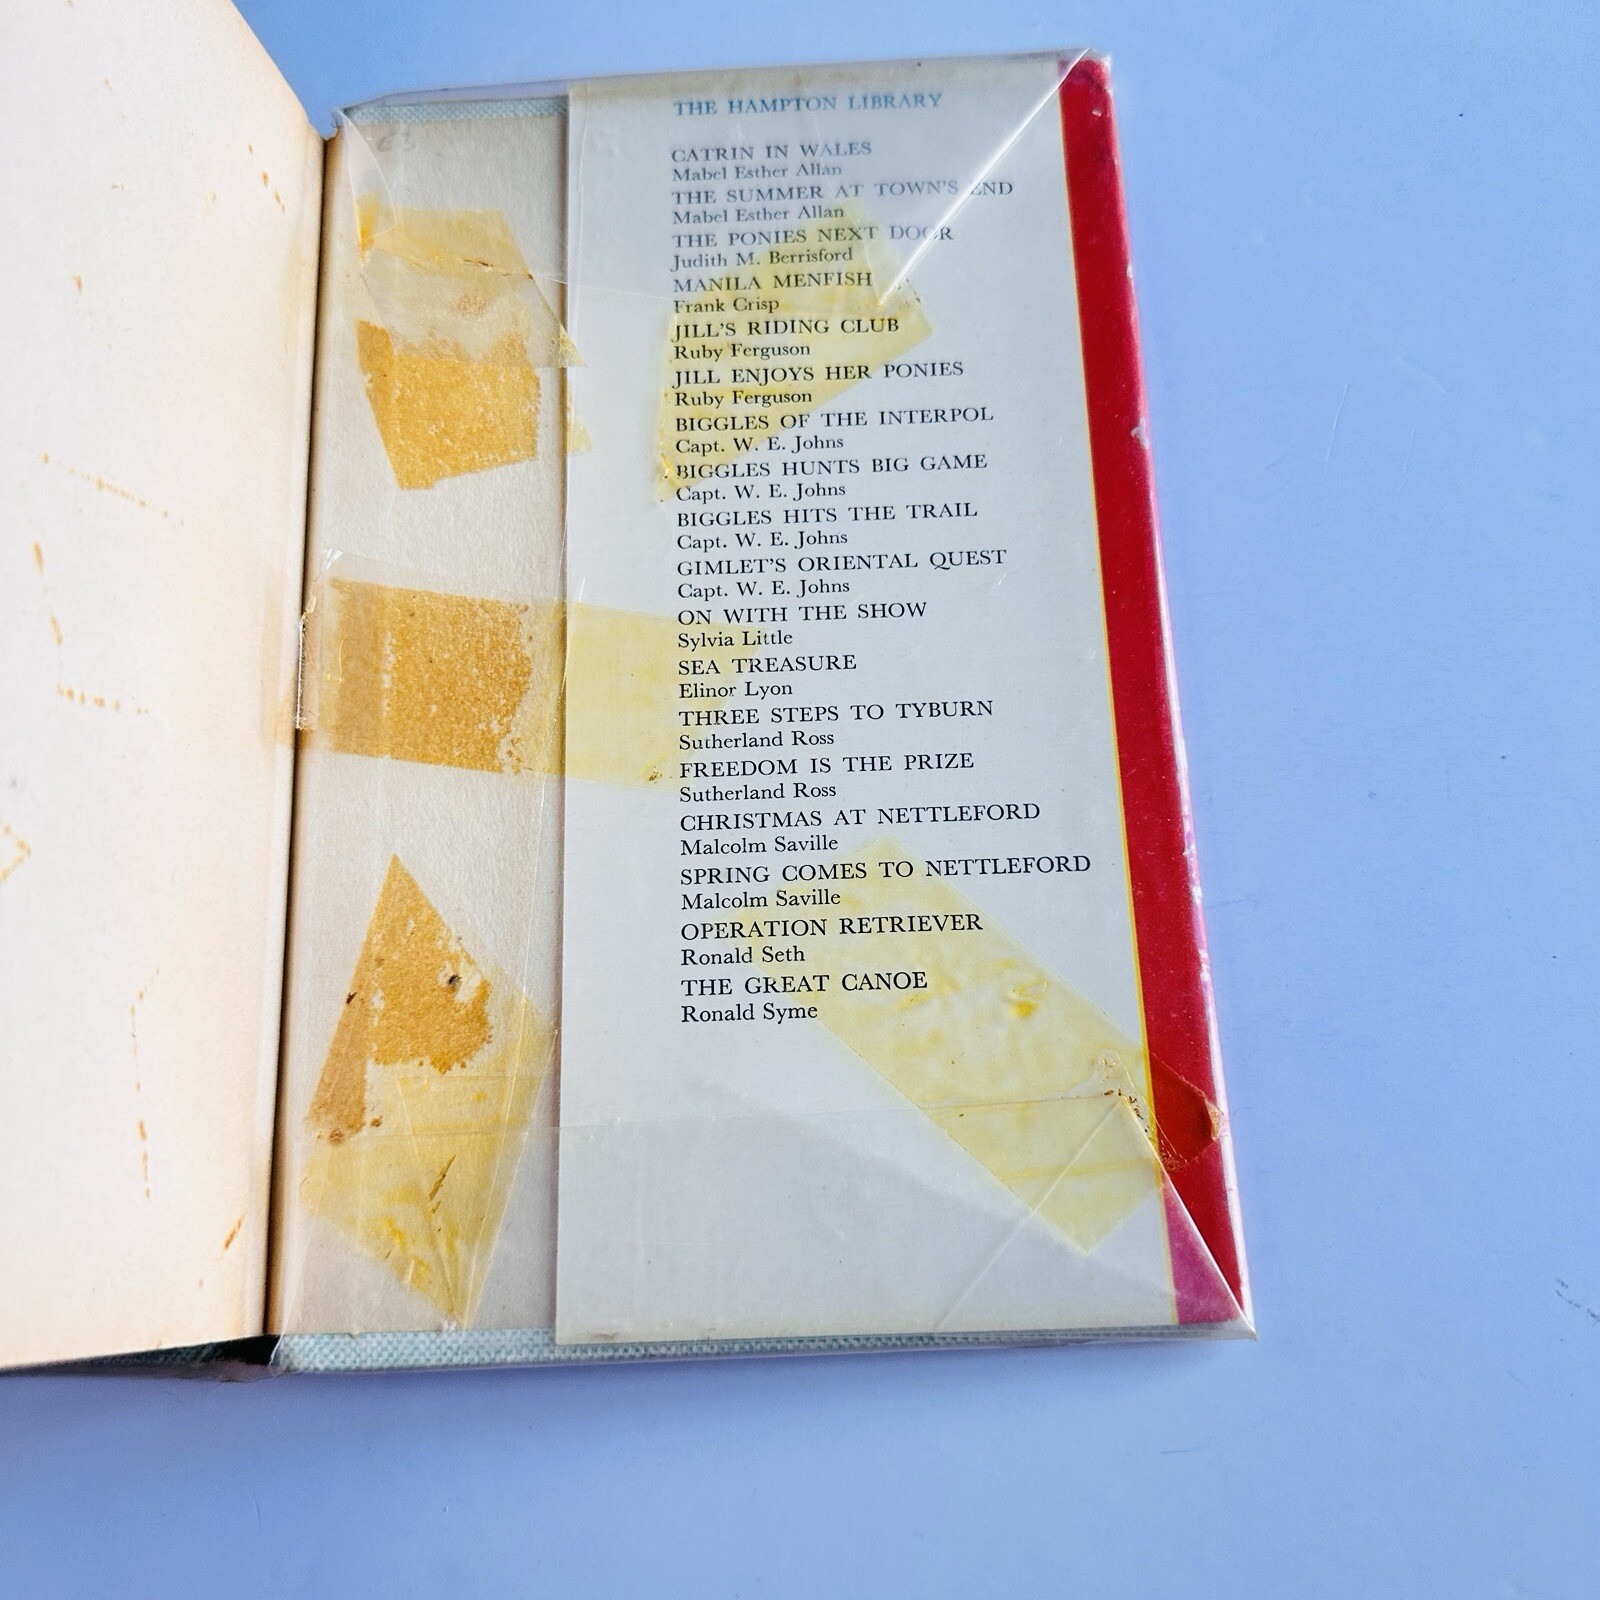 THE HAMPTON LIBRARY
CATRIN IN WALES
Mabel Esther Allan
THE SUMMER AT TOWN'S END
Mabel Esther Allan
THE PONIES NEXT DOOR
Judith M. Berrisford
MANILA MENFISH
Frank Crisp
JILL'S RIDING CLUB
Ruby Ferguson
JILL ENJOYS HER PONIES
Ruby Ferguson
BIGGLES OF THE INTERPOL
Capt. W. E. Johns
BIGGLES HUNTS BIG GAME
Capt. W. E. Johns
BIGGLES HITS THE TRAIL
Capt. W. E. Johns
GIMLET'S ORIENTAL QUEST
Capt. W. E. Johns
ON WITH THE SHOW
Sylvia Little
SEA TREASURE
Elinor Lyon
THREE STEPS TO TYBURN
Sutherland Ross
FREEDOM IS THE PRIZE
Sutherland Ross
CHRISTMAS AT NETTLEFORD
Malcolm Saville
SPRING COMES TO NETTLEFORD
Malcolm Saville
OPERATION RETRIEVER
Ronald Seth
THE GREAT CANOE
Ronald Syme